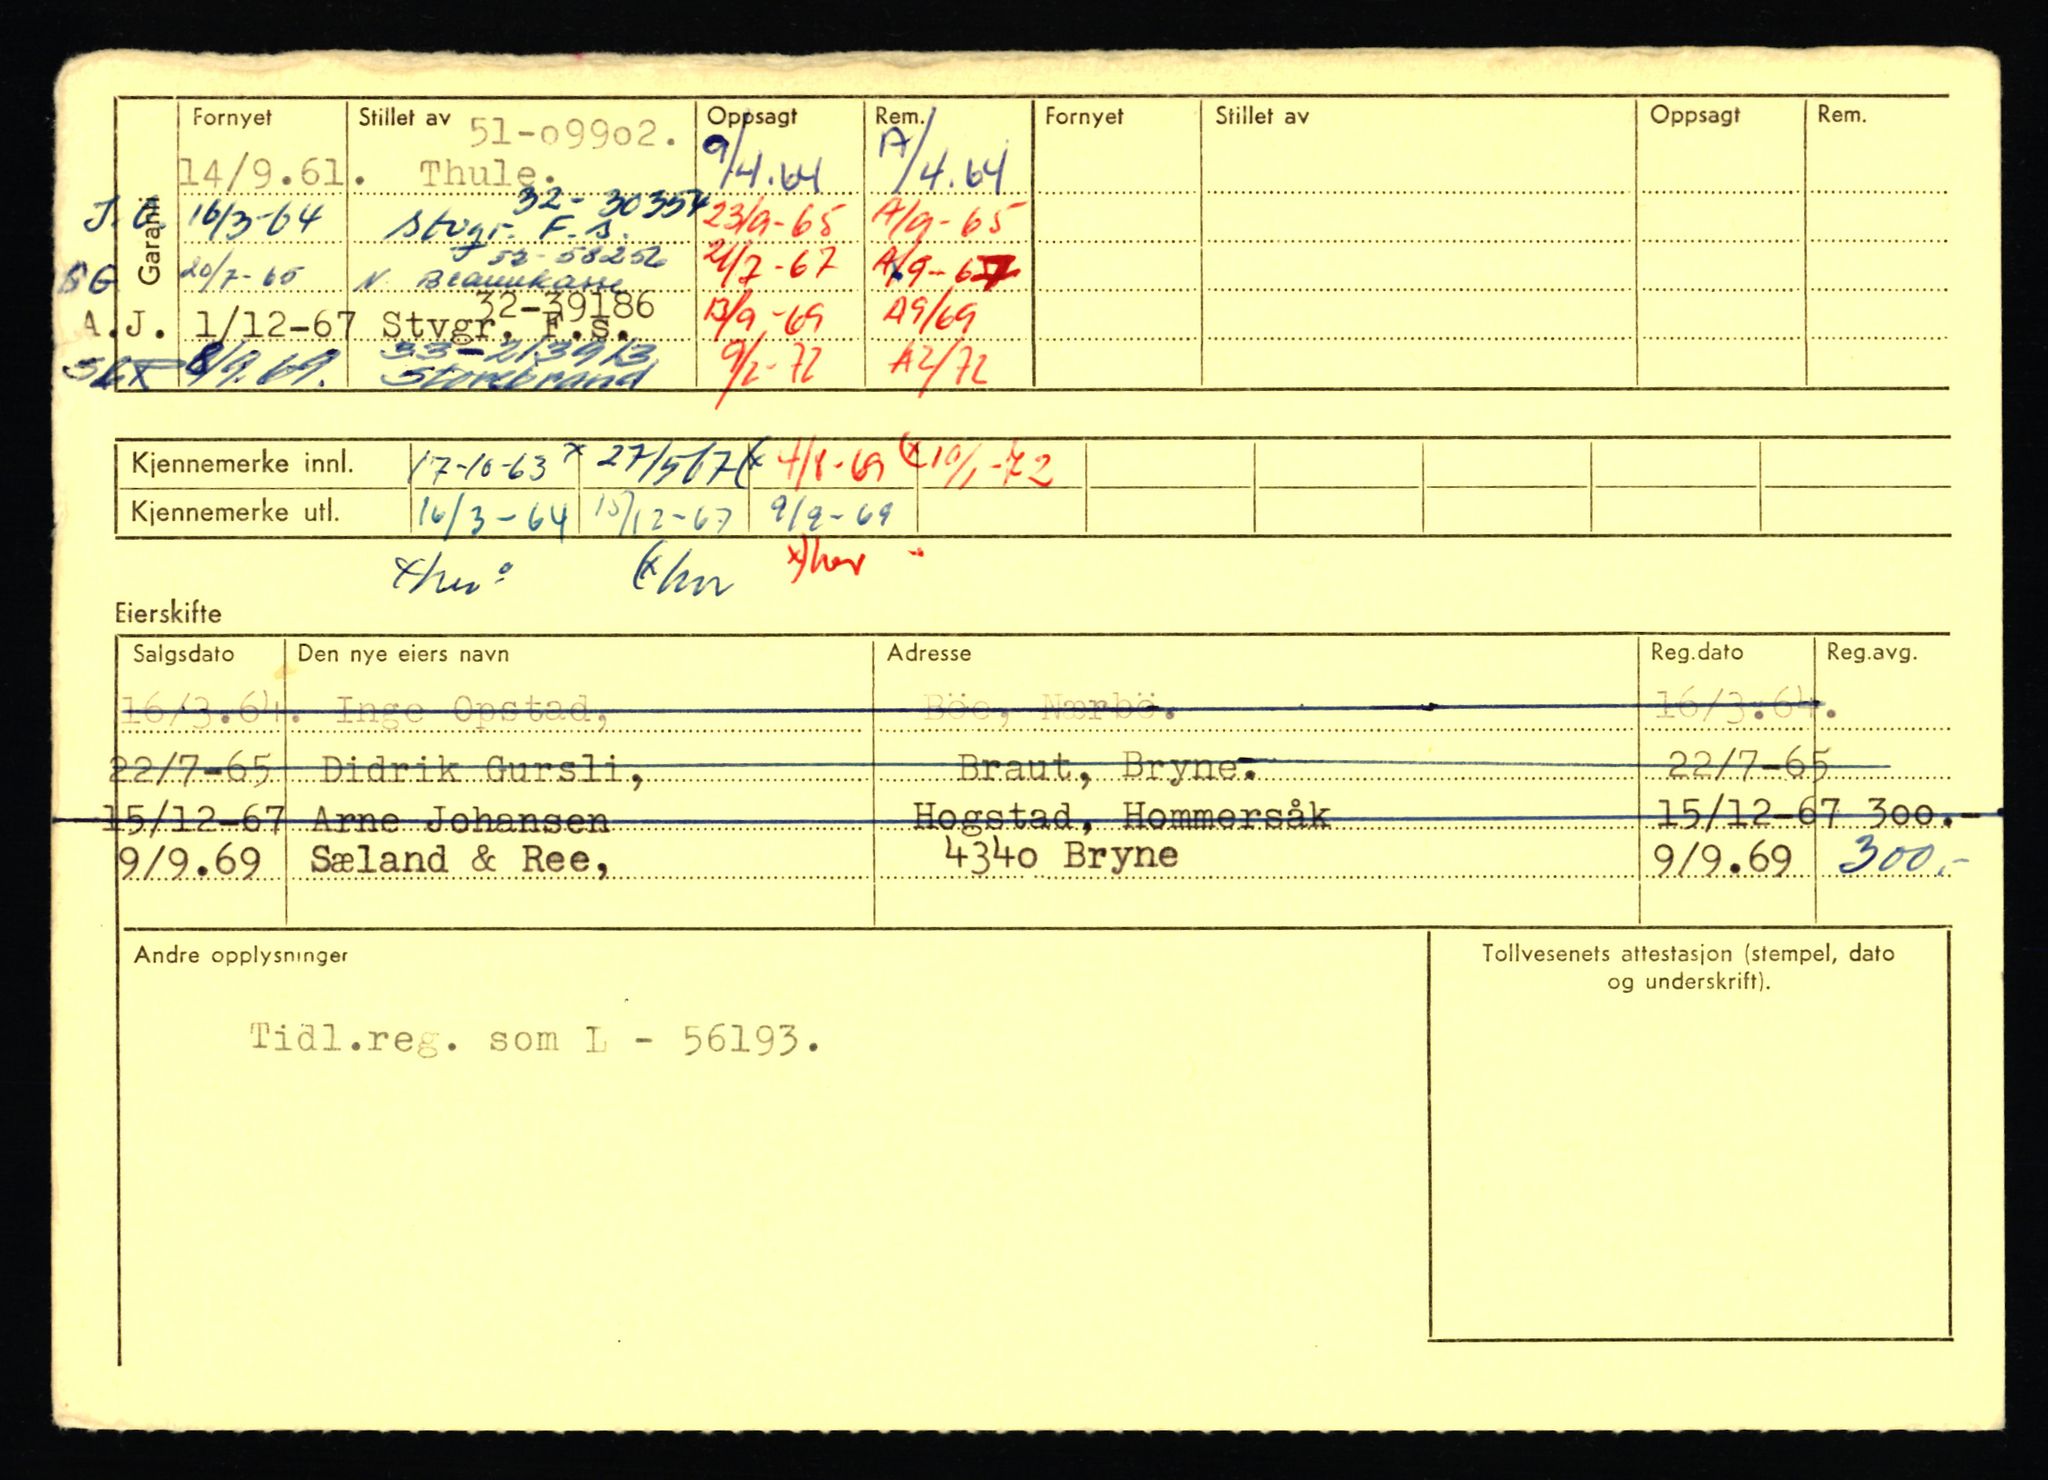 Garanti
Fornyet Stillet av Oppsagt Rem. Fornyet Stillet av Oppsagt Rem.
51-o99o2.
14/9.61. Thule. 9/4.64 A/4.64
32-30354
16/3-64 Stvgr. F.s. 23/9-65 A/9-65
52-58256
20/7-65 N. Brannkasse 21/7-67 A/9-67
32-39186
A.J. 1/12-67 Stvgr. F.s. 13/9-69 A9/69
33-213913
8/9.69. Storebrand 9/2-72 A2/72
Kjennemerke innl. 17-10-63 x 27/5 67 (x 4/8-69 (x 10/1-72
Kjennemerke utl. 16/3-64 15/12-67 9/9-69
x/her (x/her x)her
Eierskifte
Salgsdato Den nye eiers navn Adresse Reg.dato Reg.avg.
16/3.64. Inge Opstad, Böe, Nærbö. 16/3.64.
22/7-65 Didrik Gursli, Braut, Bryne. 22/7-65
15/12-67 Arne Johansen Hogstad, Hommersåk 15/12-67 3oo.-
9/9.69 Sæland & Ree, 434o Bryne 9/9.69 300,-
Andre opplysninger Tollvesenets attestasjon (stempel, dato
og underskrift).
Tidl.reg. som L - 56193.